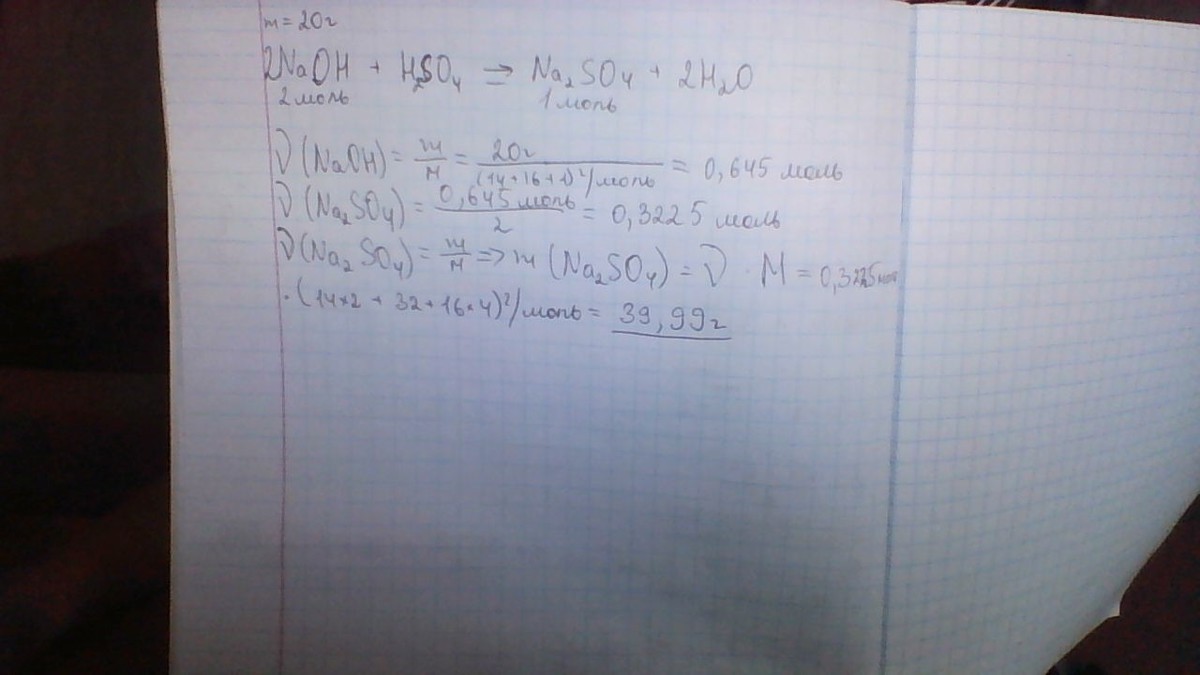 m = 20г
2NaOH + H2SO4 => Na2SO4 + 2H2O
2 моль 1 моль
ν(NaOH) = m/M = 20г/(14+16+1)г/моль = 0,645 моль
ν(Na2SO4) = 0,645 моль/2 = 0,3225 моль
ν(Na2SO4) = m/M => m(Na2SO4) = ν · M = 0,3225 моль
·(14×2 + 32 + 16·4)г/моль = 39,99г